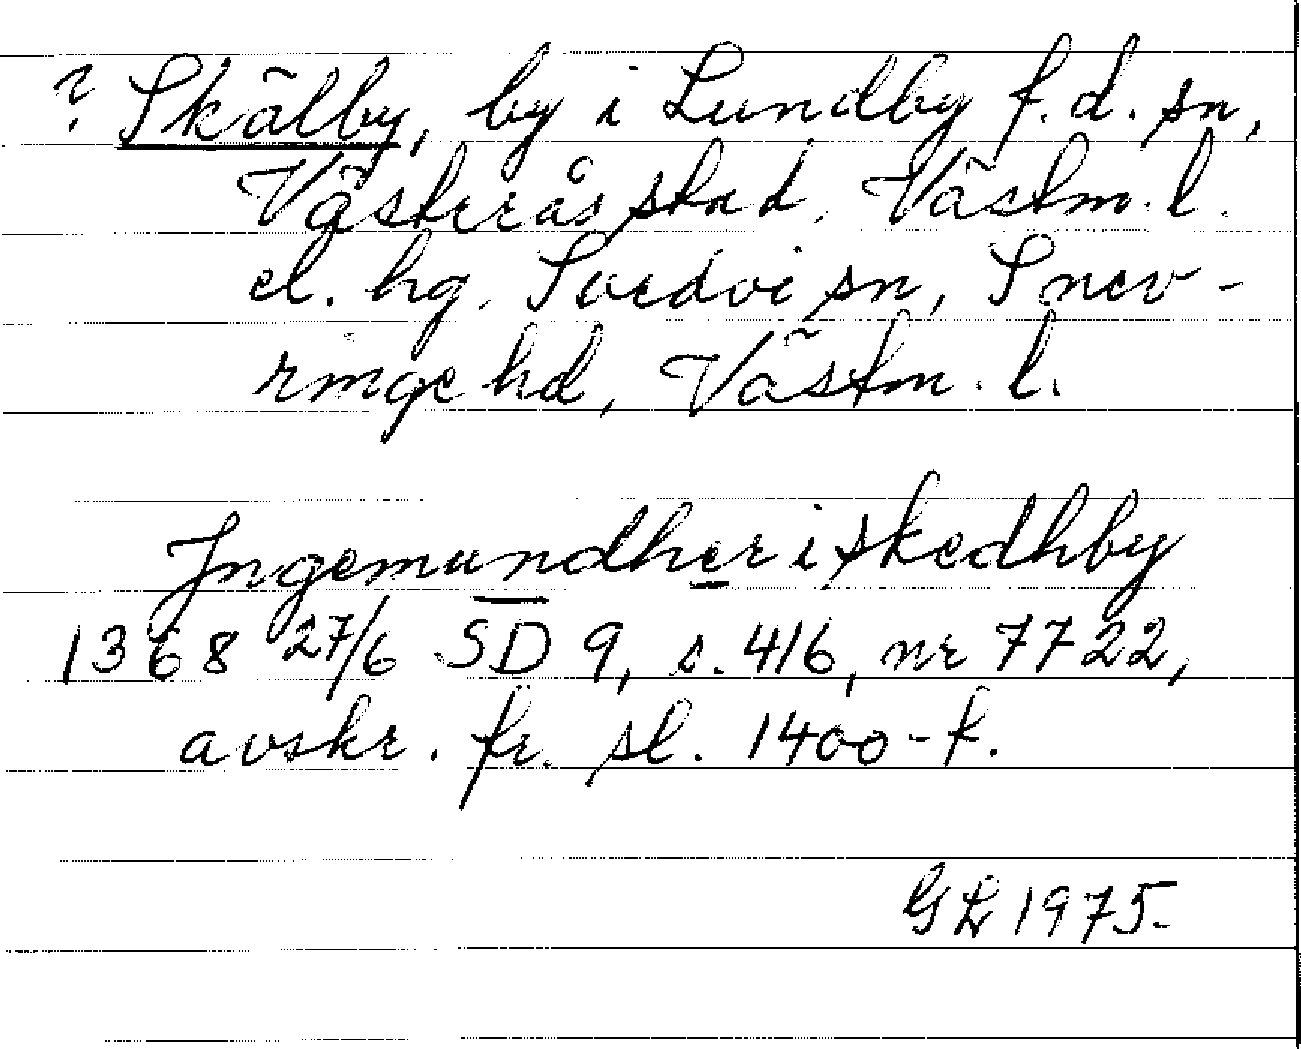 ? Skälby, by i Lundby f.d. sn,
Västerås stad, Västm. l.
el. hg, Svedvi sn, Snev-
ringe hd, Västm. l.
Ingemundher i skedhby
1368 27/6 SD 9, s. 416, nr 7722,
avskr. fr. sl. 1400-t.
GL 1975.